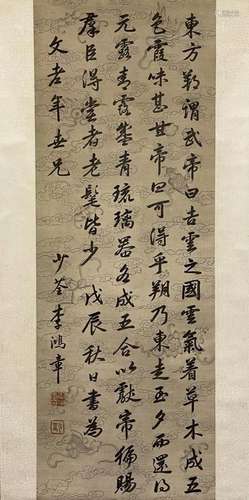 東方朔謂武帝曰吉雲之國雲氣着草木成五
色露味甚甘帝曰可得乎朔乃東走至夕而還得
元露青露盛青琉璃器各成五合以獻帝徧賜
羣臣得嘗者老髦皆少 戊辰秋日書為
文老年世兄
少荃李鴻章